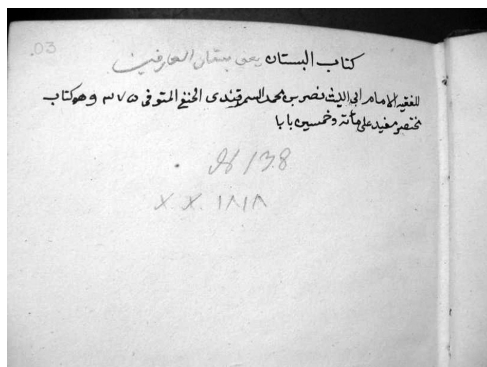 .03
كتاب البستان يعني بستان العارفين
للفقيه الامام ابى الليث نصر بن محمد السمرقندى الحنفى المتوفى ٣٧٥ وهو كتاب
مختصر مفيد على مأئة وخمسين بابا
138
X X. ١٨١٨